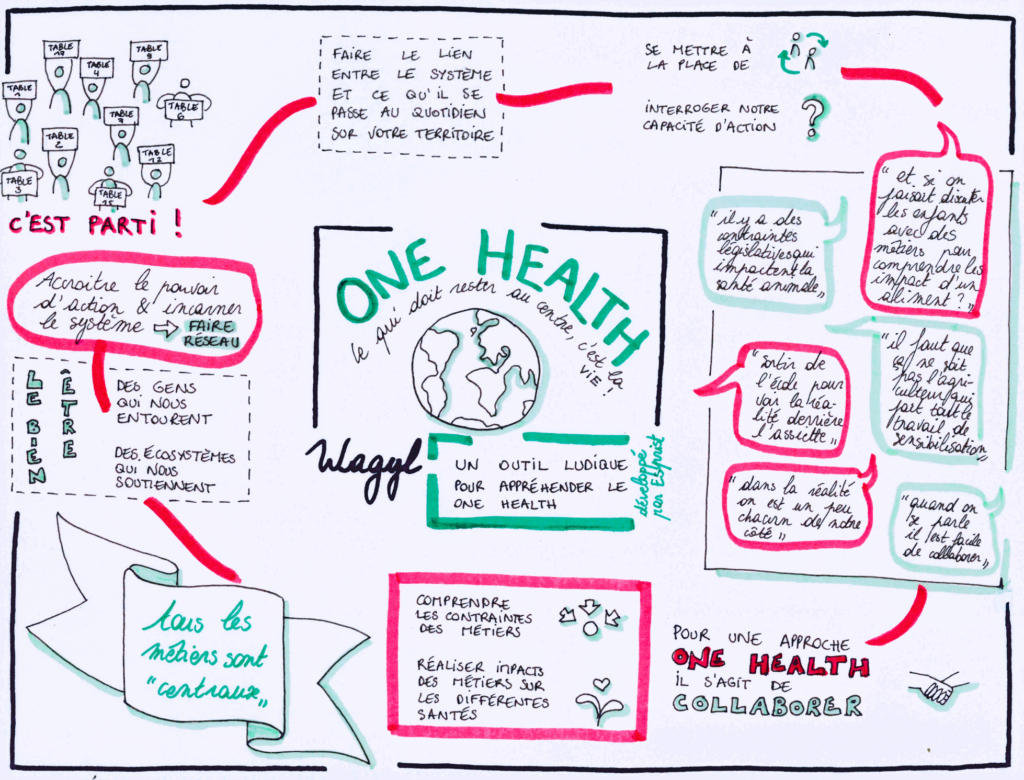 TABLE
10
TABLE
9
TABLE
4
TABLE
1
TABLE
6
TABLE
TABLE
2
TABLE
3
TABLE
12
TABLE
15
C'EST PARTI !
FAIRE LE LIEN
ENTRE LE SYSTÈME
ET CE QU'IL SE
PASSE AU QUOTIDIEN
SUR VOTRE TERRITOIRE
SE METTRE À
LA PLACE DE
INTERROGER NOTRE
CAPACITÉ D'ACTION
?
"et si on
faisait discuter
les enfants
avec des
métiers pour
comprendre les
impact d'un
aliment ?"
"il y a des
contraintes
législatives qui
impactent la
santé animale"
"il faut que
ça ne soit
pas l'agri-
culteur qui
fait tout le
travail de
sensibilisation"
"sortir de
l'école pour
voir la réa-
lité derrière
l'assiette"
"dans la réalité
on est un peu
chacun de notre
côté"
"quand on
se parle
il est facile
de collaborer"
POUR UNE APPROCHE
ONE HEALTH
IL S'AGIT DE
COLLABORER
ONE HEALTH
ce qui doit rester au centre, c'est la
VIE !
Wagyl
UN OUTIL LUDIQUE
POUR APPRÉHENDER LE
ONE HEALTH
développé
par
Accroitre le pouvoir
d'action & incarner
le système ⇨ FAIRE
RÉSEAU
LE BIEN
ÊTRE
DES GENS
QUI NOUS
ENTOURENT
DES ÉCOSYSTÈMES
QUI NOUS
SOUTIENNENT
tous les
métiers sont
"centraux"
COMPRENDRE
LES CONTRAINTES
DES MÉTIERS
RÉALISER IMPACTS
DES MÉTIERS SUR
LES DIFFÉRENTES
SANTÉS